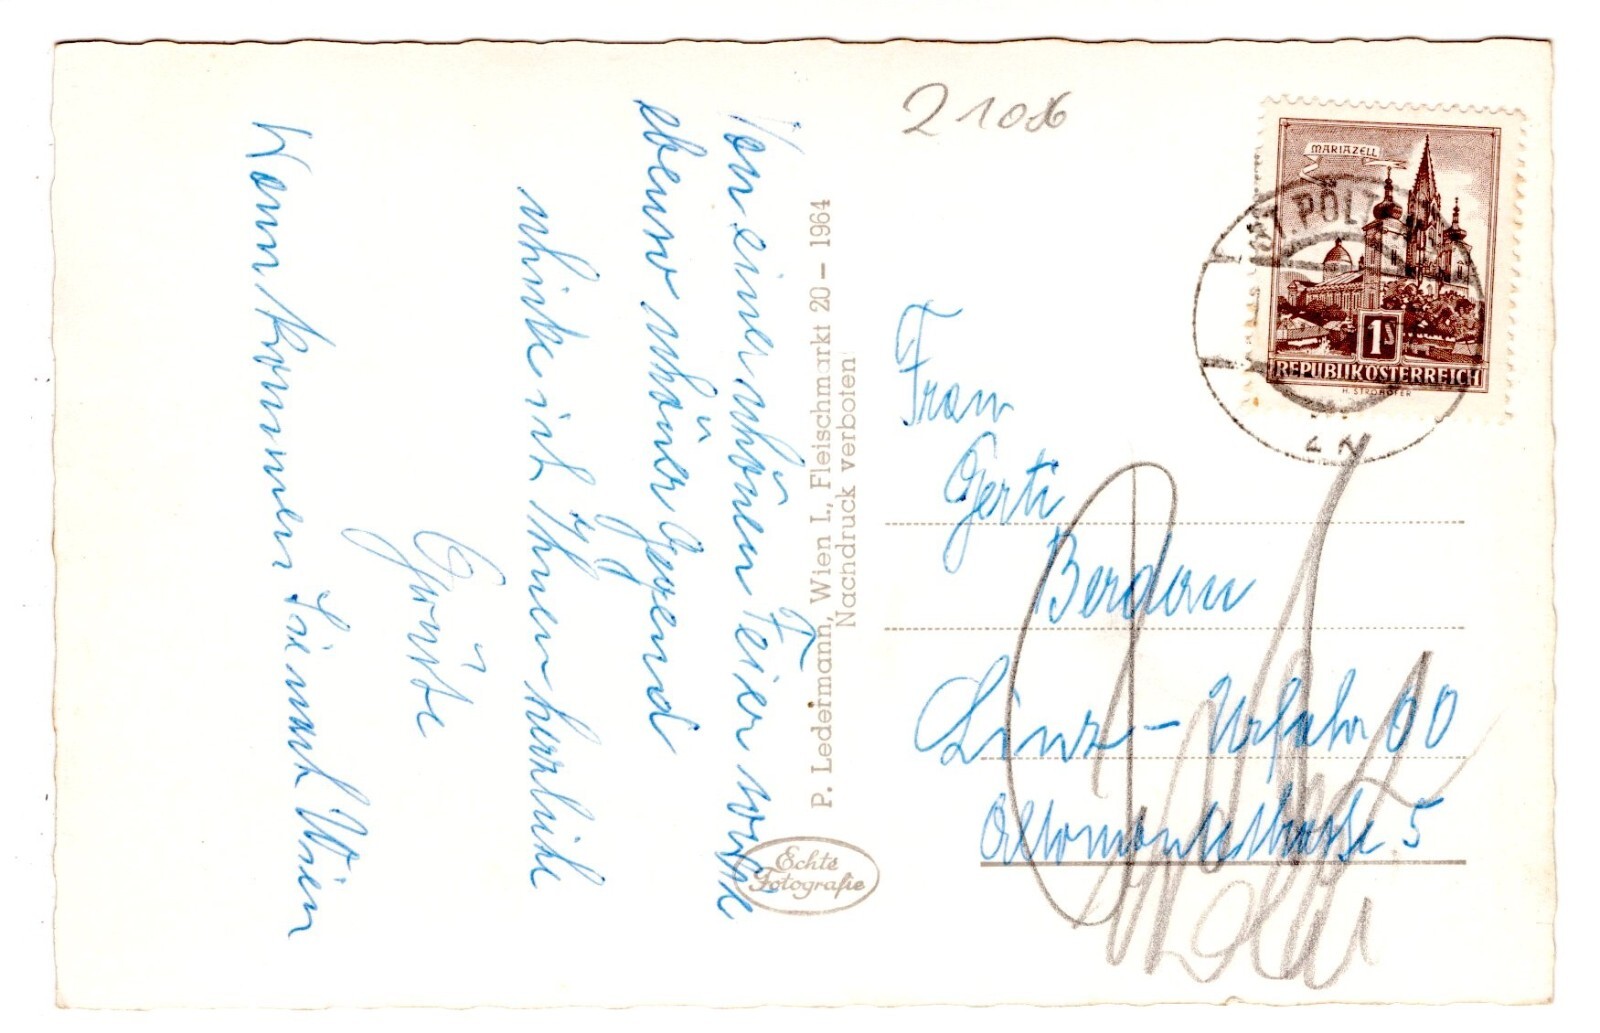 Von einer schönen Feier sowie
ebenso schöner Gegend
schicke ich Ihnen herzliche
Grüße
Wann kommen Sie nach Wien
P. Ledermann, Wien I., Fleischmarkt 20 – 1964
Nachdruck verboten
Echte
Fotografie
2108
MARIAZELL
1S
REPUBLIK ÖSTERREICH
PÖLT
Frau
Gerti
Linz – Urfahr
5